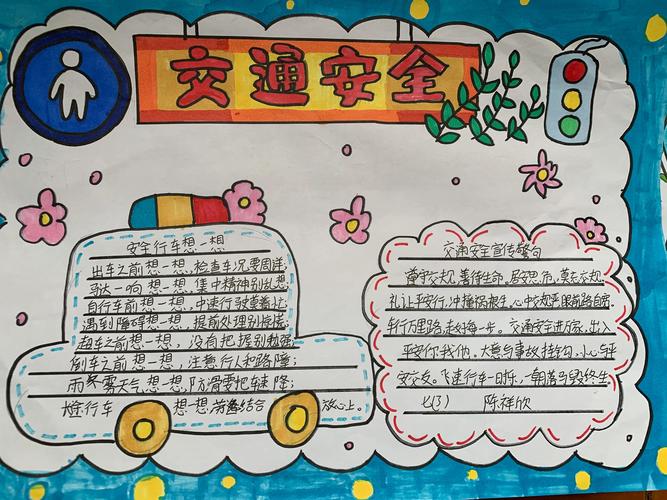 交通安全
安全行车想一想
出车之前想一想,检查车况要周详;
马达一响想一想,集中精神别乱想
自行车前想一想,中速行驶
遇到障碍想一想,提前处理别
超车之前想一想,没有把握别勉强
倒车之前想一想,注意行人和路障;
雨雾天气想一想,防滑要把车速降;
行车 想一想 结合 放心上。
交通安全宣传警句
遵守交规,善待生命,居安思危,莫忘交规
礼让平安行,冲撞祸根生,心中交规严眼前路自宽
车行万里路,走好每一步。交通安全进万家,出入
平安你我他。大意与事故挂钩,小心与平
安交友。飞速行车一时,一朝落马毁终生。
七(3) 陈祥欣